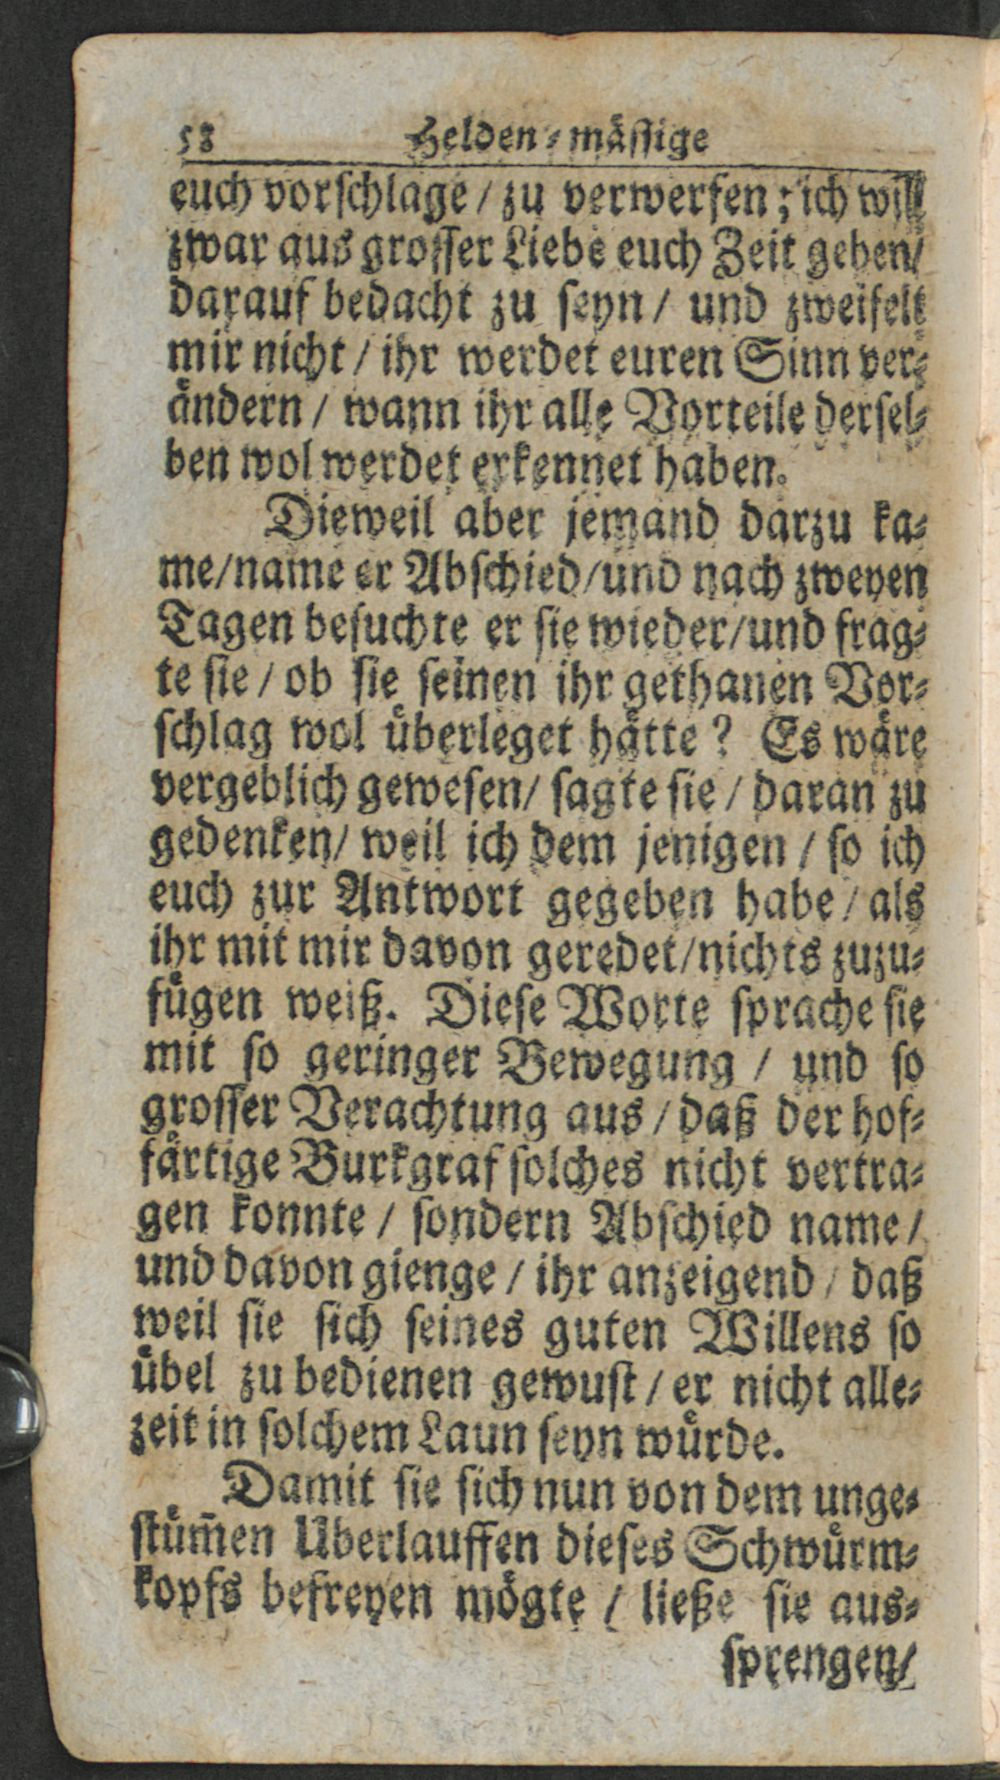 58 Helden-mässige
euch vorschlage / zu verwerfen; ich will
zwar aus grosser Liebe euch Zeit geben/
darauf bedacht zu seyn / und zweifelt
mir nicht / ihr werdet euren Sinn ver-
ändern / wann ihr alle Vorteile dersel-
ben wol werdet erkennet haben.
Dieweil aber jemand darzu ka-
me/name er Abschied/und nach zweyen
Tagen besuchte er sie wieder/und frag-
te sie / ob sie seinen ihr gethanen Vor-
schlag wol überleget hätte? Es wäre
vergeblich gewesen/ sagte sie / daran zu
gedenken/ weil ich dem jenigen / so ich
euch zur Antwort gegeben habe / als
ihr mit mir davon geredet/nichts zuzu-
fügen weiß. Diese Worte sprache sie
mit so geringer Bewegung / und so
grosser Verachtung aus / daß der hof-
färtige Burkgraf solches nicht vertra-
gen konnte / sondern Abschied name /
und davon gienge / ihr anzeigend / daß
weil sie sich seines guten Willens so
übel zu bedienen gewust / er nicht alle-
zeit in solchem Laun seyn würde.
Damit sie sich nun von dem unge-
stüm̃en Uberlauffen dieses Schwürm-
kopfs befreyen mögte / ließe sie aus-
sprengen/